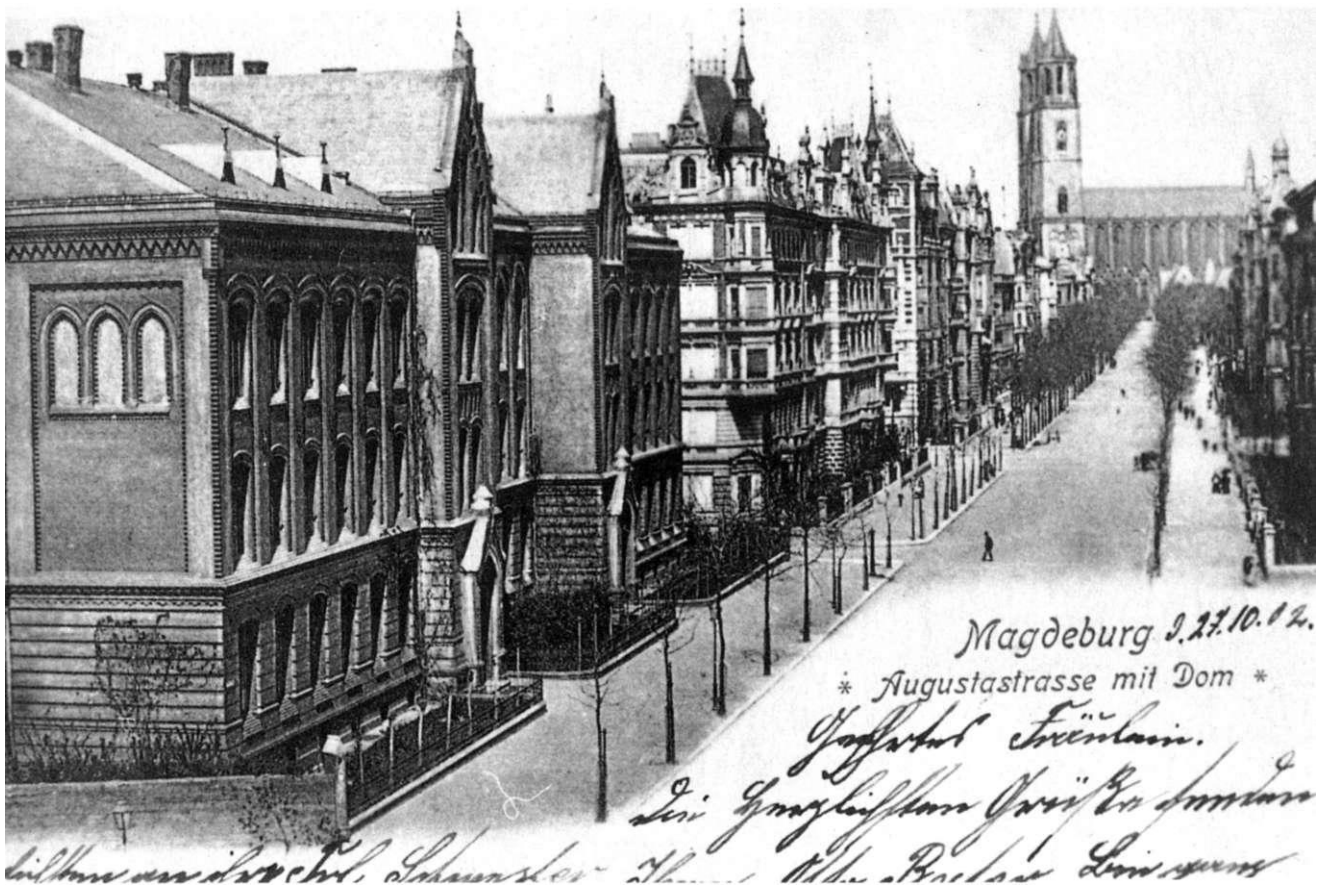 Magdeburg d. 27.10.02.
* Augustastrasse mit Dom *
Geehrtes Fräulein.
Die Herzlichsten Grüße senden
Schwester Ihnen Otto